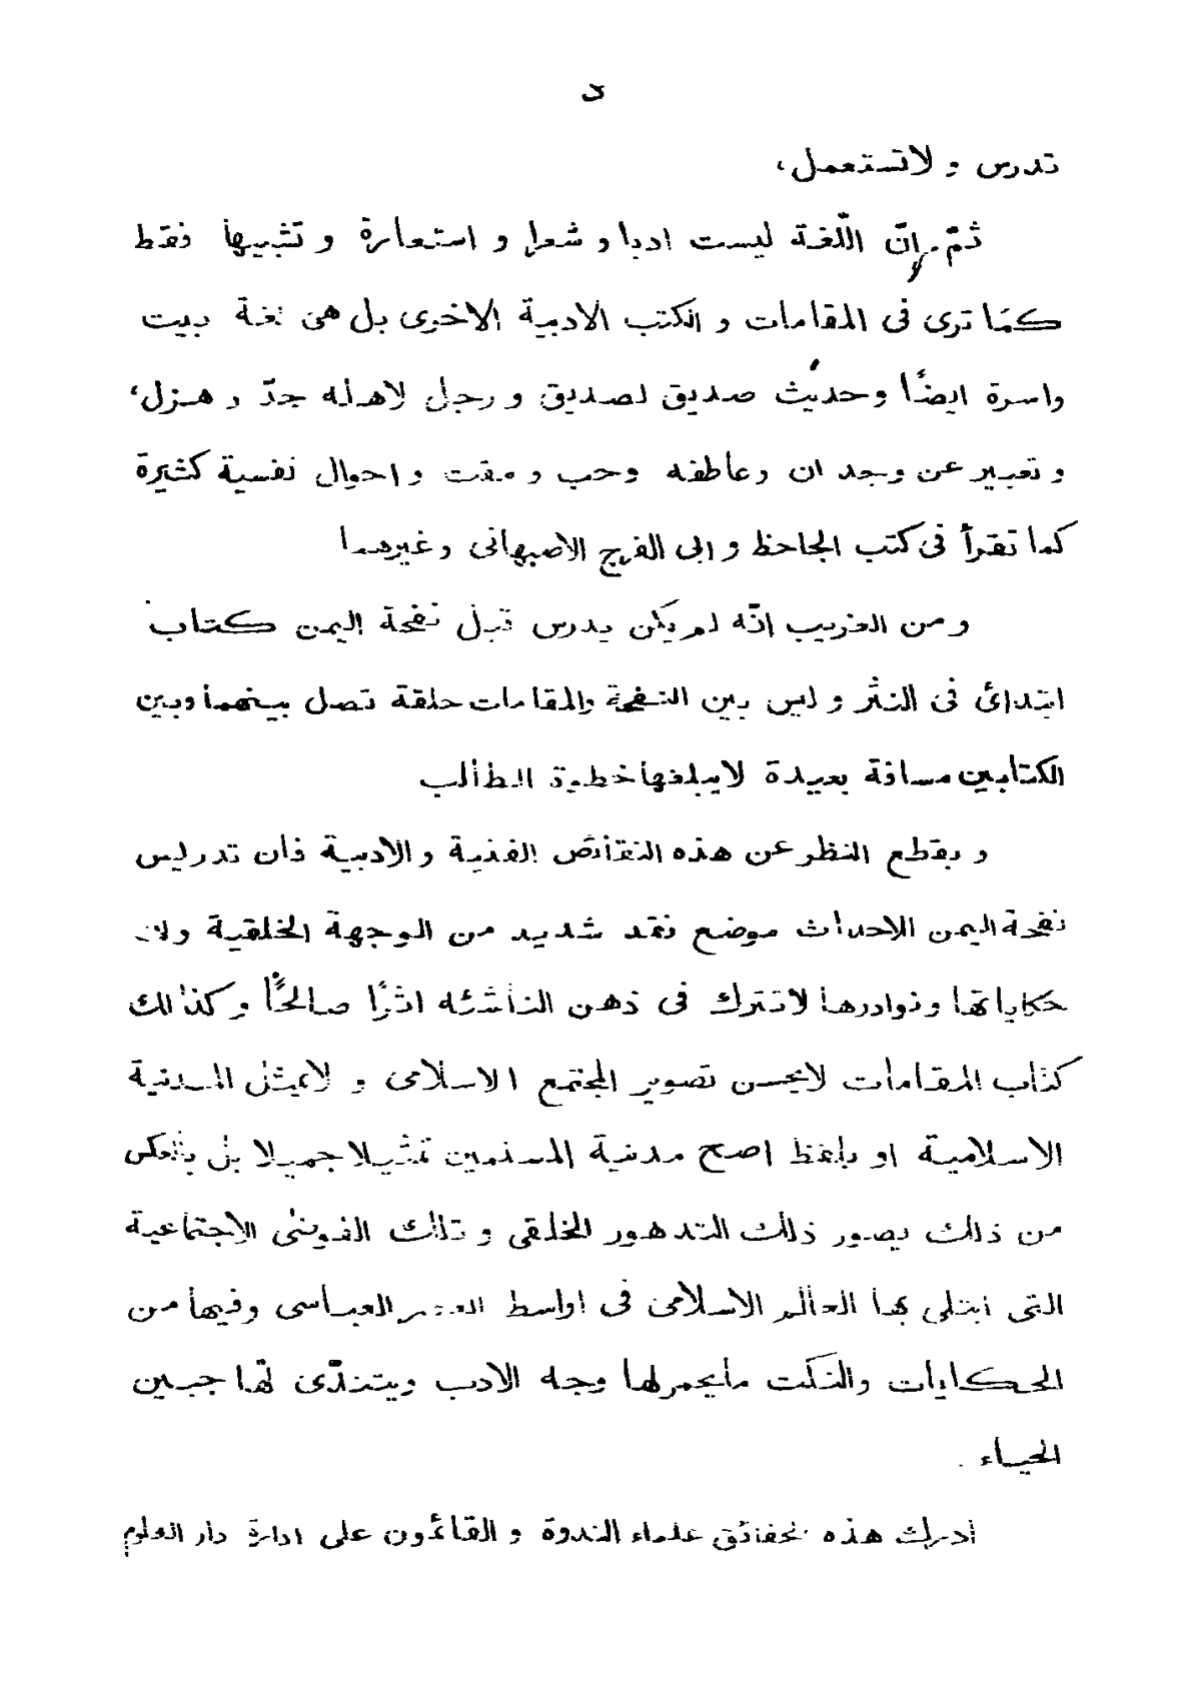 د
تدرس و لاتستعمل،
ثمّ إنّ اللّغة ليست ادبا و شعرا و استعارة و تشبيها فقط
كمَا ترى فى المقامات و الكتب الادبية الاخرى بل هى لغة بيت
واسرة ايضًا وحديث صديق لصديق و رجل لاهله جدّ و هزل،
و تعبير عن وجدان وعاطفه وحب و مقت و احوال نفسية كثيرة
كما تقرأ فى كتب الجاحظ و ابى الفرج الاصبهانى وغيرهما
و من الغريب انّه لم يكن يدرس قبل نفحة اليمن كتاب
ابتدائ فى النثر و ليس بين النفحة والمقامات حلقة تصل بينهما وبين
الكتابين مسافة بعيدة لايبلغها خطوة الطالب
و بقطع النظر عن هذه النقائص الفنية و الادبية فان تدريس
نفحة اليمن الاحداث موضع نقد شديد من الوجهة الخلقية ولان
حكاياتها ونوادرها لاتترك فى ذهن الناشئه اثرًا صالحًا وكذالك
كتاب المقامات لايحسن تصوير المجتمع الاسلامى و لايمثل المدنية
الاسلامية او بلفظ اصح مدنية المسلمين تمثيلا جميلا بل بالعكس
من ذالك يصور ذالك التدهور الخلقى و تلك الفوضى الاجتماعية
التى ابتلى بها العالم الاسلامى فى اواسط العصر العباسى وفيها من
الحكايات والنكت مايحمرلها وجه الادب ويتندّى لها جبين
الحياء .
أدرك هذه الحقائق علماء الندوة و القائمون على ادارة دار العلوم